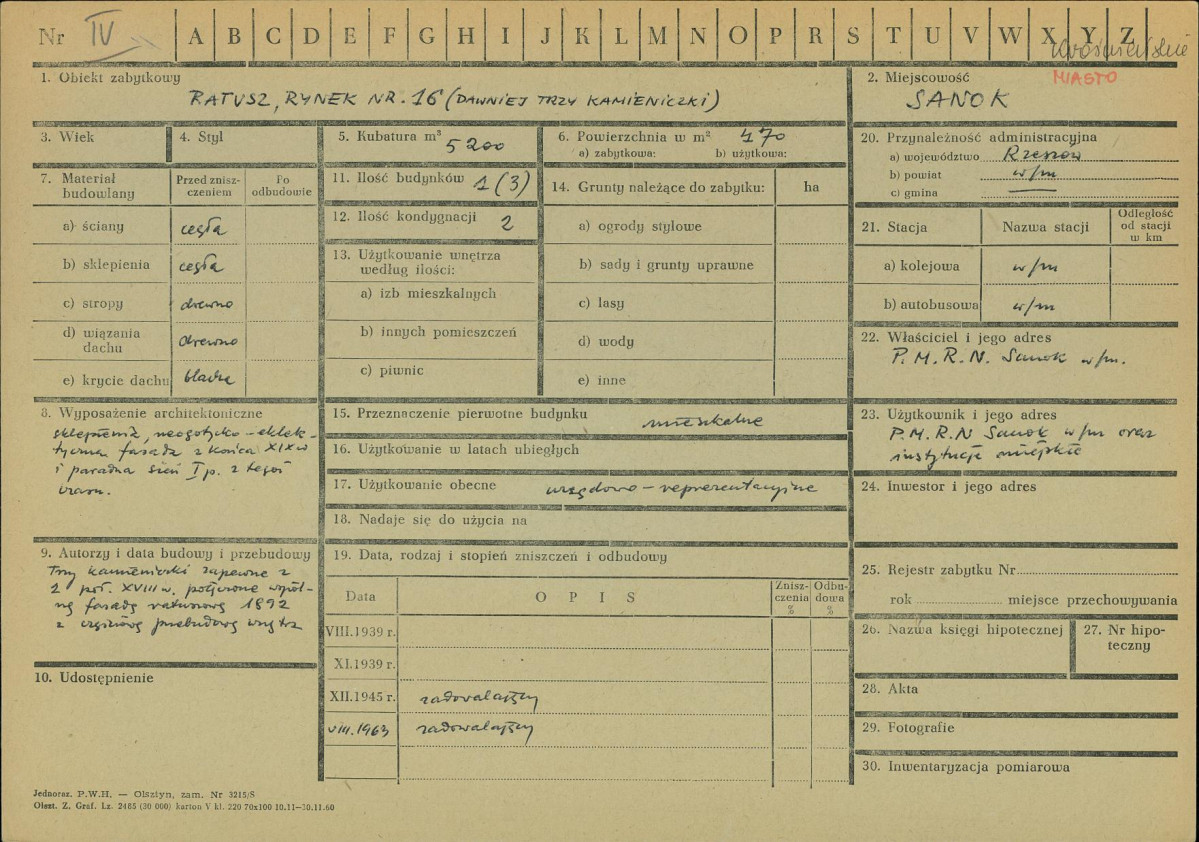 Nr IV A B C D E F G H I J K L M N O P R S T U V W X Y Z
krośnieńskie
MIASTO
1. Obiekt zabytkowy
RATUSZ, RYNEK NR. 16 (DAWNIEJ TRZY KAMIENICZKI)
2. Miejscowość
SANOK
3. Wiek
4. Styl
5. Kubatura m³ 5200
6. Powierzchnia w m² 470
a) zabytkowa: b) użytkowa:
7. Materiał budowlany
Przed zniszczeniem
Po odbudowie
a) ściany cegła
b) sklepienia cegła
c) stropy drewno
d) wiązania dachu drewno
e) krycie dachu blacha
8. Wyposażenie architektoniczne
sklepienia, neogotycko-eklek-
tyczna fasada z końca XIX w
i paradna sień I p. z tegoż
czasu.
9. Autorzy i data budowy i przebudowy
Trzy kamieniczki zapewne z
2 poł. XVIII w. połączone wspól-
ną fasadą ratuszową 1892
z częściową przebudową wnętrz
10. Udostępnienie
11. Ilość budynków 1 (3)
12. Ilość kondygnacji 2
13. Użytkowanie wnętrza
według ilości:
a) izb mieszkalnych
b) innych pomieszczeń
c) piwnic
14. Grunty należące do zabytku: ha
a) ogrody stylowe
b) sady i grunty uprawne
c) lasy
d) wody
e) inne
15. Przeznaczenie pierwotne budynku mieszkalne
16. Użytkowanie w latach ubiegłych
17. Użytkowanie obecne urzędowo-reprezentacyjne
18. Nadaje się do użycia na
19. Data, rodzaj i stopień zniszczeń i odbudowy
Data
O P I S
Zniszczenia %
Odbudowa %
VIII.1939 r.
XI.1939 r.
XII.1945 r. zadowalający
VIII.1963 zadowalający
20. Przynależność administracyjna
a) województwo Rzeszów
b) powiat w/m
c) gmina —
21. Stacja
Nazwa stacji
Odległość od stacji w km
a) kolejowa w/m
b) autobusowa w/m
22. Właściciel i jego adres
P. M. R. N. Sanok w/m.
23. Użytkownik i jego adres
P. M. R. N Sanok w/m oraz
instytucje miejskie
24. Inwestor i jego adres
25. Rejestr zabytku Nr
rok miejsce przechowywania
26. Nazwa księgi hipotecznej
27. Nr hipoteczny
28. Akta
29. Fotografie
30. Inwentaryzacja pomiarowa
Jednoraz. P.W.H. — Olsztyn, zam. Nr 3215/S
Olszt. Z. Graf. Lz. 2485 (30 000) karton V kl. 220 70x100 10.11—30.11.60